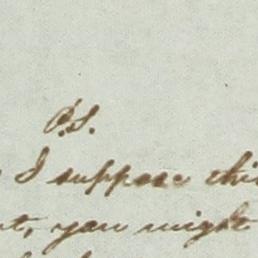 P.S.
I suppose this
you might